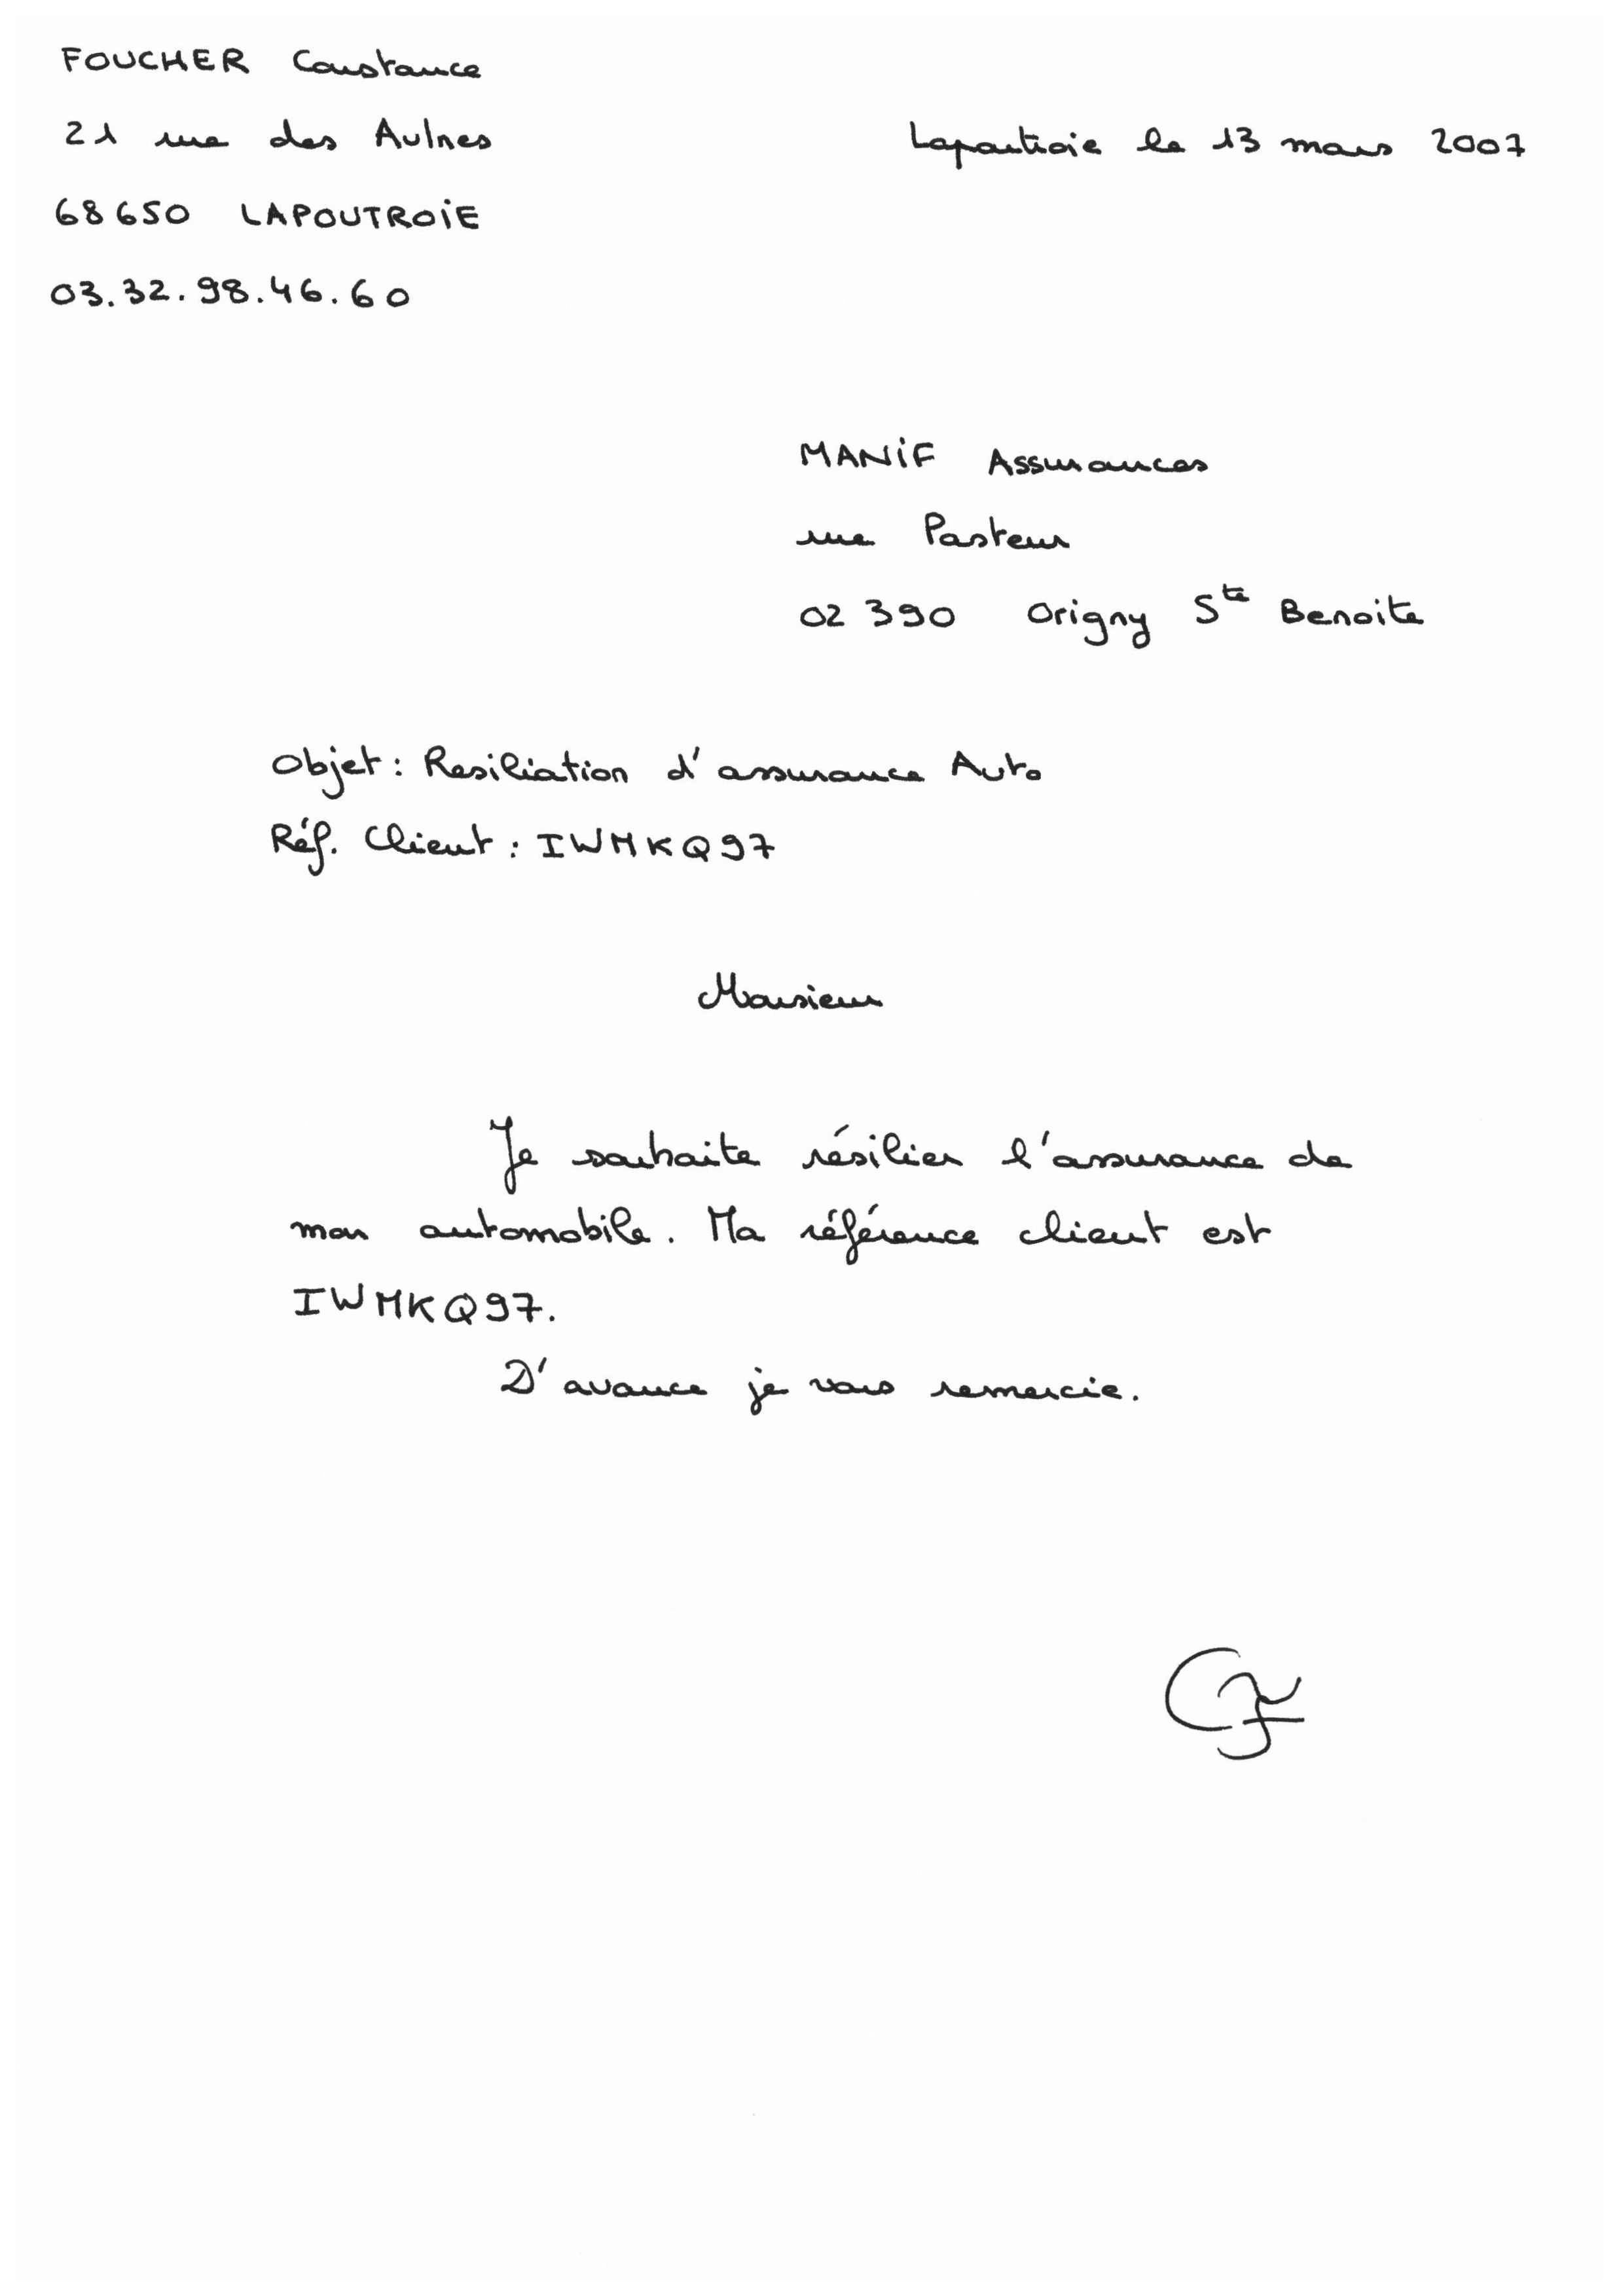 FOUCHER Constance
21 rue des Aulnes
Lapoutroie le 13 mars 2007
68650 LAPOUTROIE
03.32.98.46.60
MANIF Assurances
rue Pasteur
02 390 Origny Ste Benoite
Objet : Resiliation d'assurance Auto
Réf. Client : IWMKQ97
Monsieur
Je souhaite résilier l'assurance de
mon automobile. Ma référence client est
IWMKQ97.
D'avance je vous remercie.